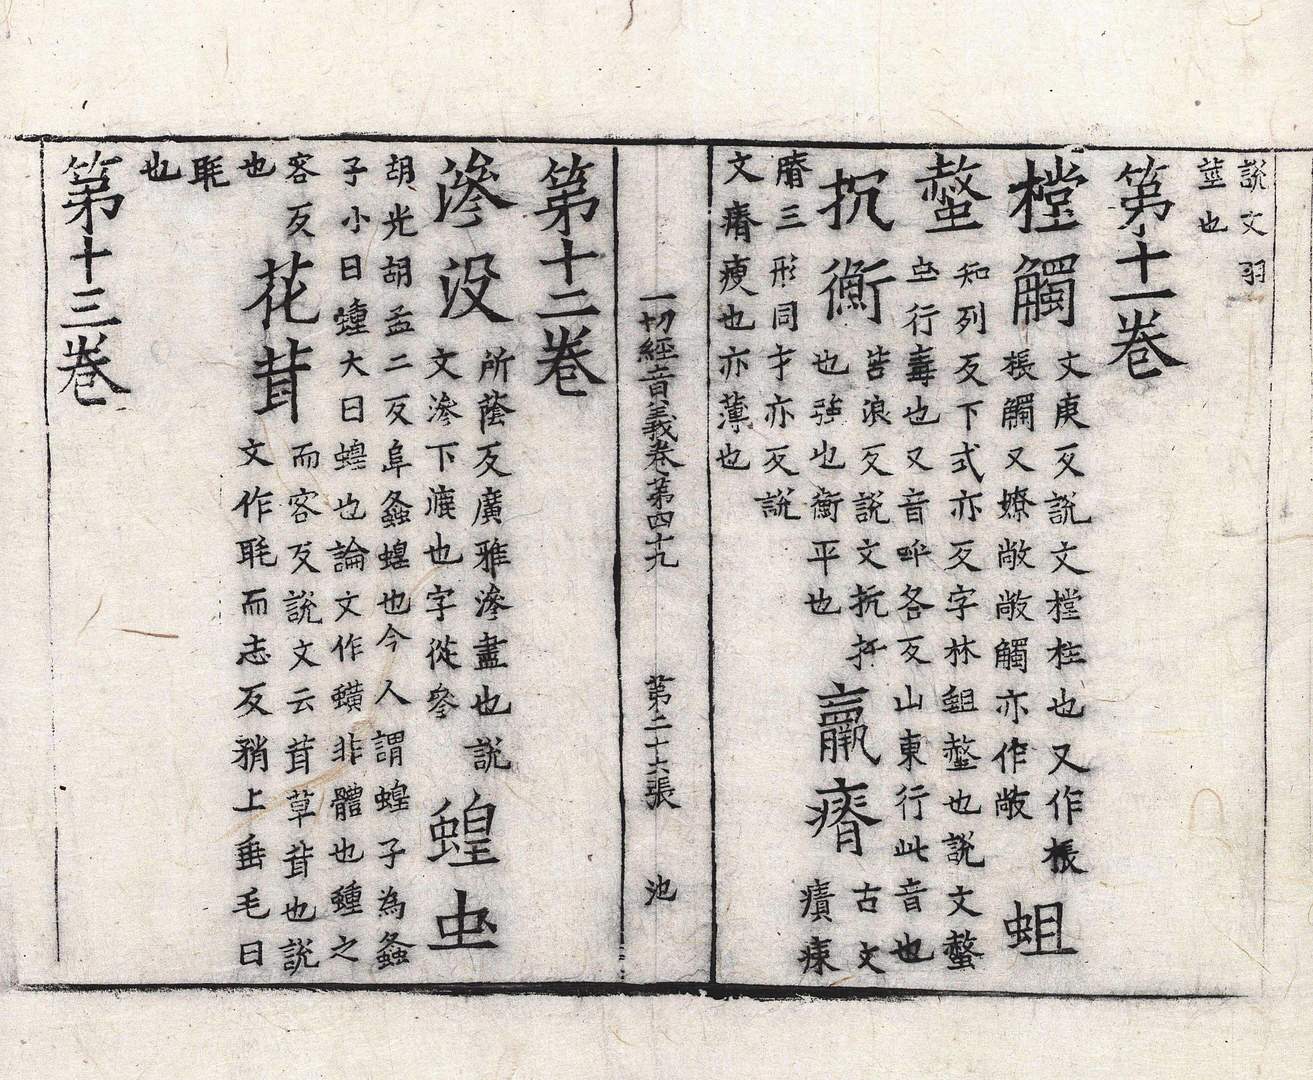 說文羽
莖也
第十一卷
樘觸
丈庚反說文樘柱也又作棖
棖觸又嫽敞敞觸亦作敞
蛆
螫
知列反下式亦反字林蛆螫也說文螫
虫行毒也又音呼各反山東行此音也
抗衡
苦浪反說文抗扞
也強也衡平也
羸瘠
古文
膌三形同才亦反說
文瘠瘦也亦薄也
一切經音義卷第四十九 第二十六張 池
第十二卷
滲没
所蔭反廣雅滲盡也說
文滲下漉也字從參
蝗虫
胡光胡孟二反阜螽蝗也今人謂蝗子為螽
子小曰蝩大曰蝗也論文作蟥非體也蝩之
容反
也
花茸
而容反說文云茸草茸也說
文作毦而志反矟上垂毛曰
毦
也
第十三卷